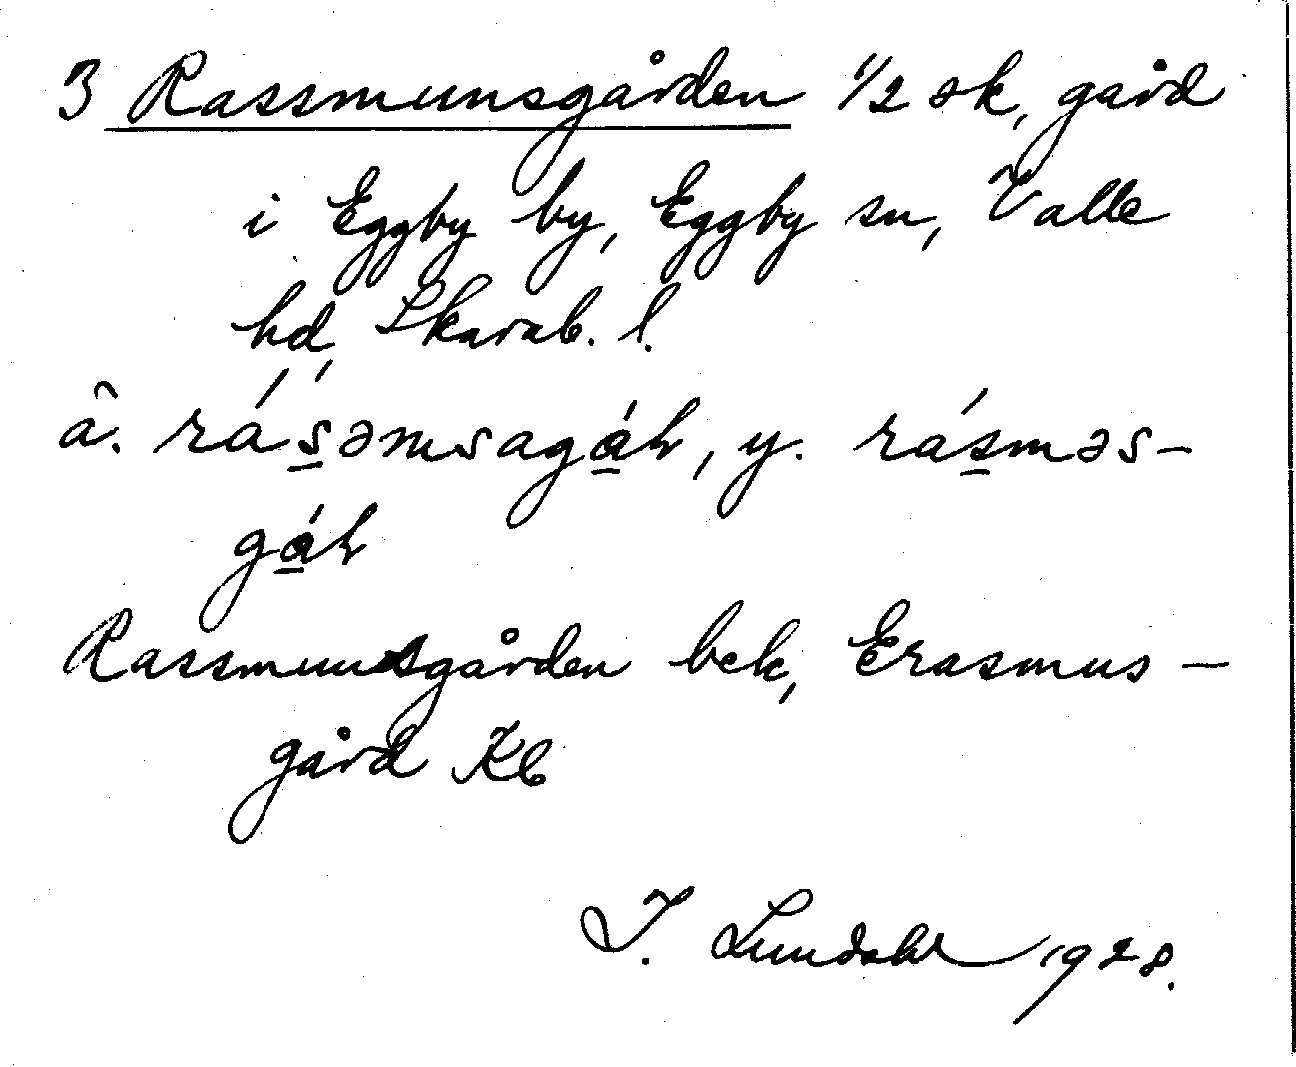 3 Rassmunsgården 1/2 sk, gård
i Eggby by, Eggby sn, Valle
hd, Skarab. l.
â. rás̲əmsagá̲ɫ, y. rás̲məs-
gá̲ɫ
Rassmunsgården bek, Erasmus-
gård Kb
I. Lundahl 1928.